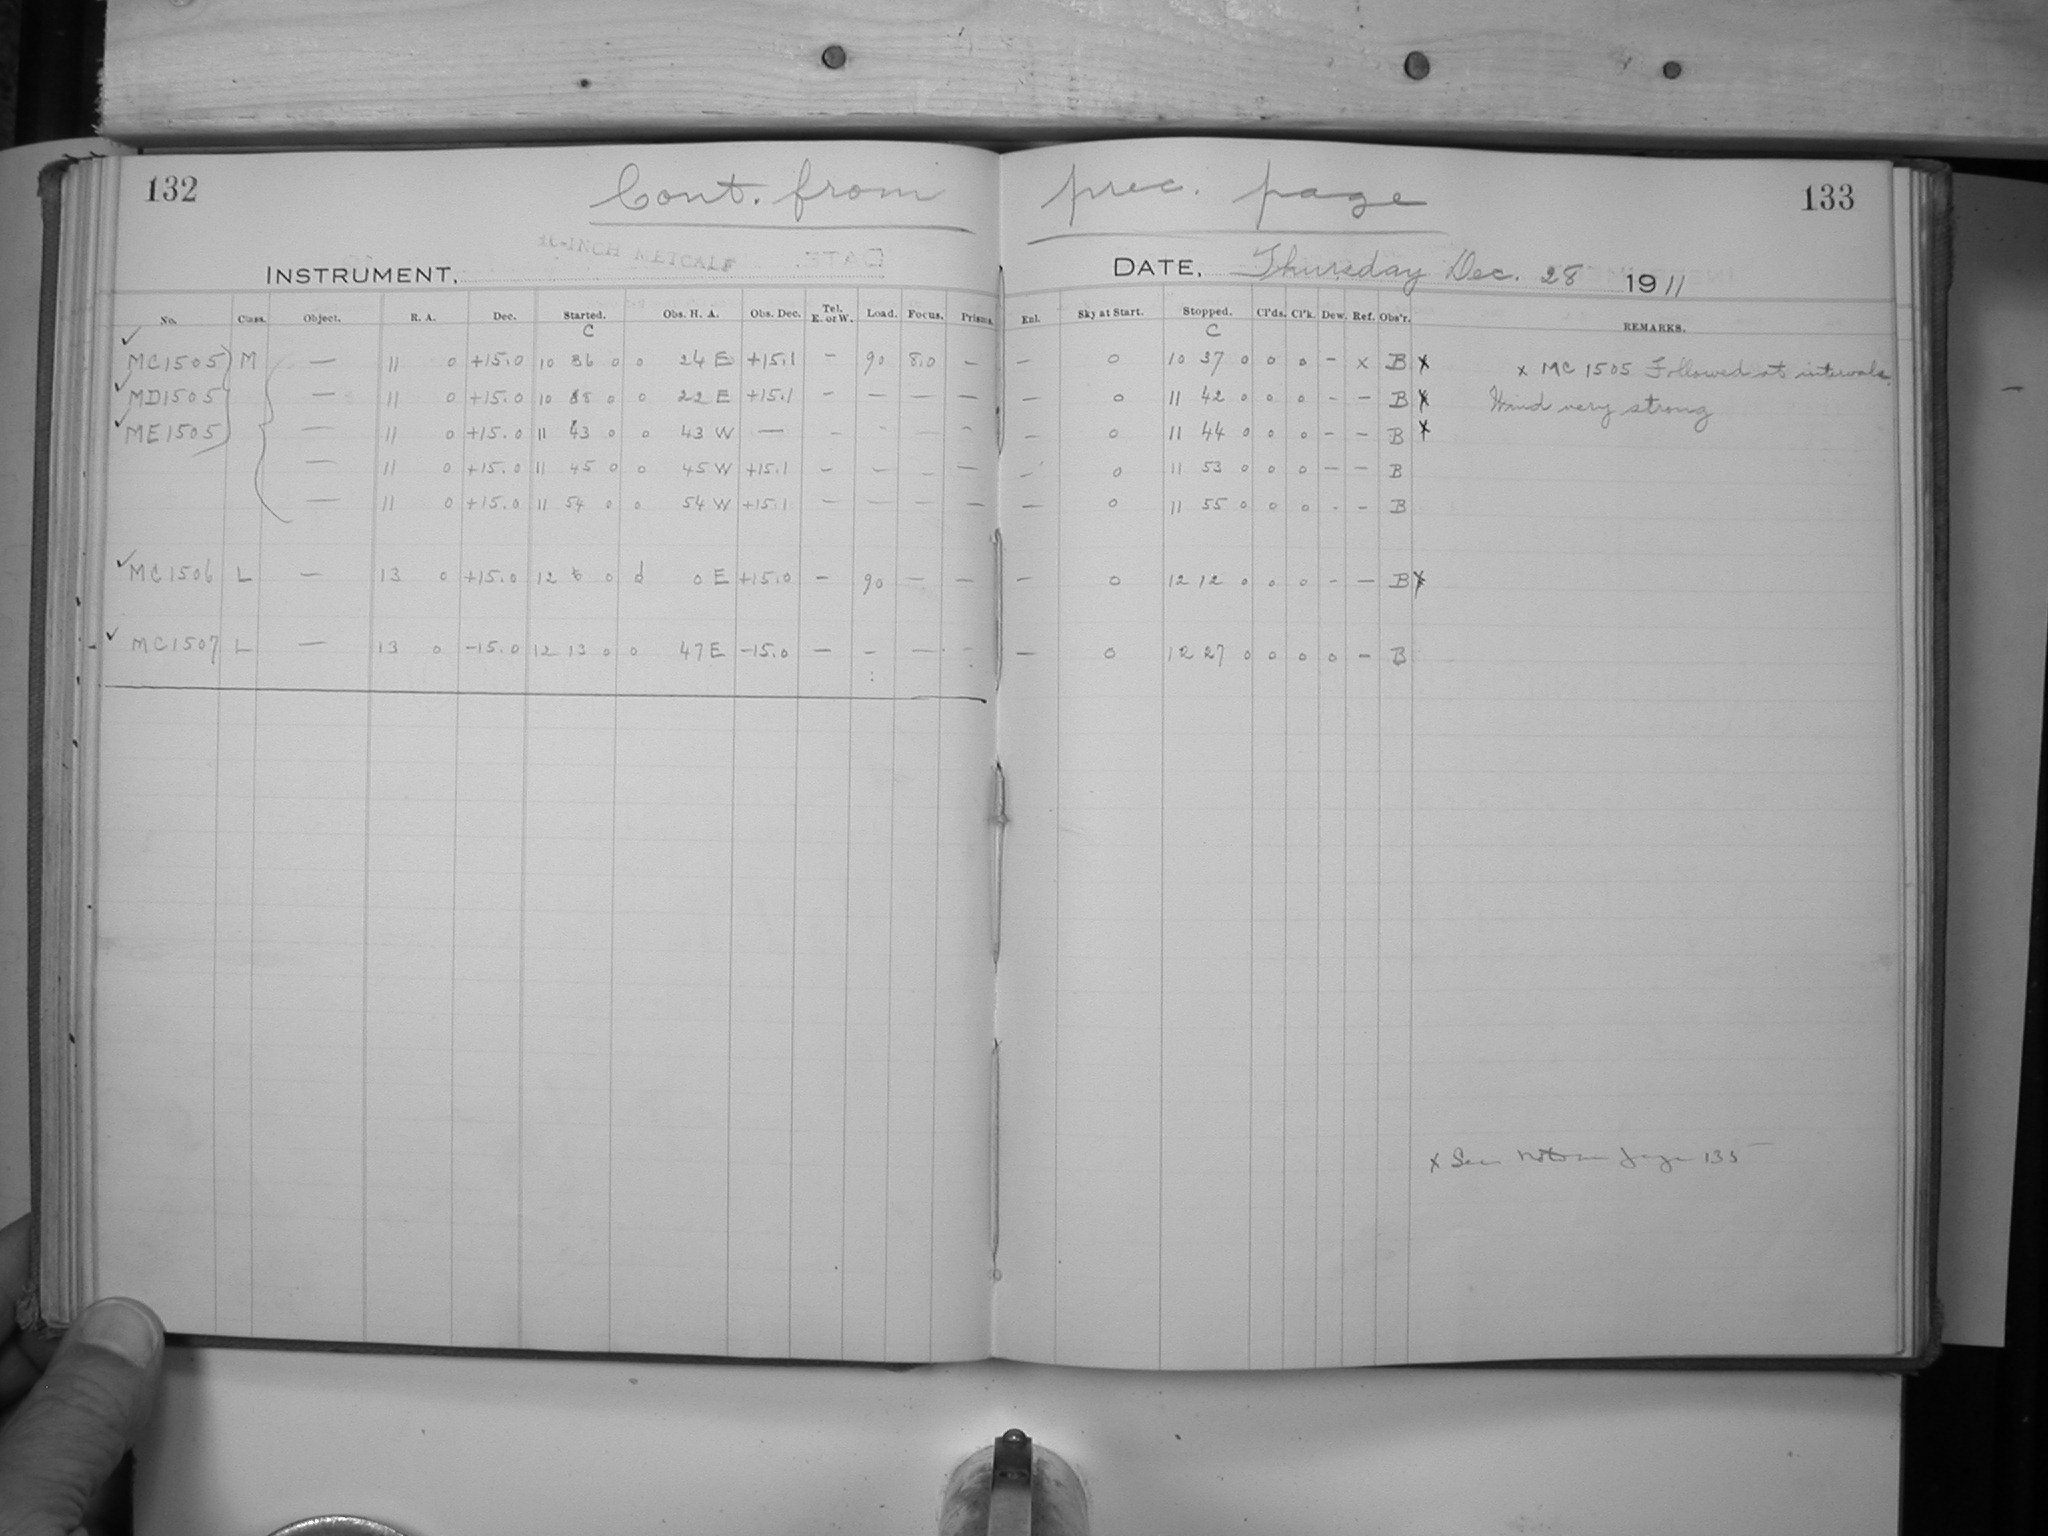 132 Cont. from prec. page 133
INSTRUMENT. 16-INCH METCALF DATE DATE. Thursday Dec. 28 1911
No. Class. Object. R. A. Dec. Started. Obs. H. A. Obs. Dec. Tel. E. or W. Load. Focus. Prisms. Enl. Sky at Start. Stopped. Cl'ds. Cl'k. Dew. Ref. Obs'r. REMARKS.
C C
MC1505 M — 11 0 +15.0 10 36 0 0 24 E +15.1 – 90 8.0 – — 0 10 37 0 0 0 – x B x x MC 1505 Followed at intervals.
MD1505 — 11 0 +15.0 10 0 0 22 E +15.1 – — — — — 0 11 42 0 0 0 – – B x Wind very strong
ME1505 — 11 0 +15.0 11 43 0 0 43 W — – – – – — 0 11 44 0 0 0 – – B x
— 11 0 +15.0 11 45 0 0 45 W +15.1 – — – — – 0 11 53 0 0 0 – – B
— 11 0 +15.0 11 54 0 0 54 W +15.1 – — — — — 0 11 55 0 0 0 - – B
MC1506 L — 13 0 +15.0 12 0 0 E +15.0 – 90 — — – 0 12 12 0 0 0 - – B x
MC1507 L — 13 0 -15.0 12 13 0 0 47 E -15.0 — – — – — 0 12 27 0 0 0 0 – B
x See note on page 135